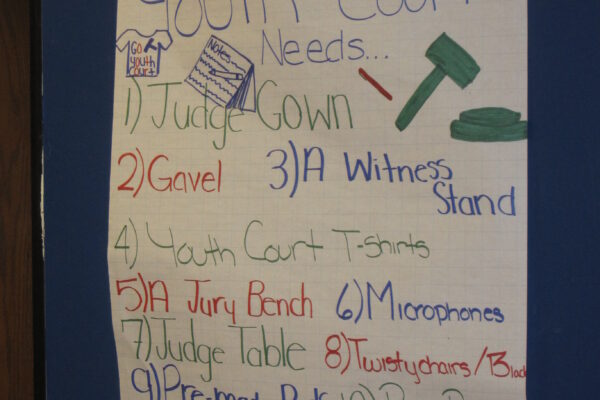 Youth Court
Needs...
Go
Youth
Court
Notes
1) Judge Gown
2) Gavel
3) A Witness
Stand
4) Youth Court T-shirts
5) A Jury Bench
6) Microphones
7) Judge Table
8) Twisty chairs / Black
9)